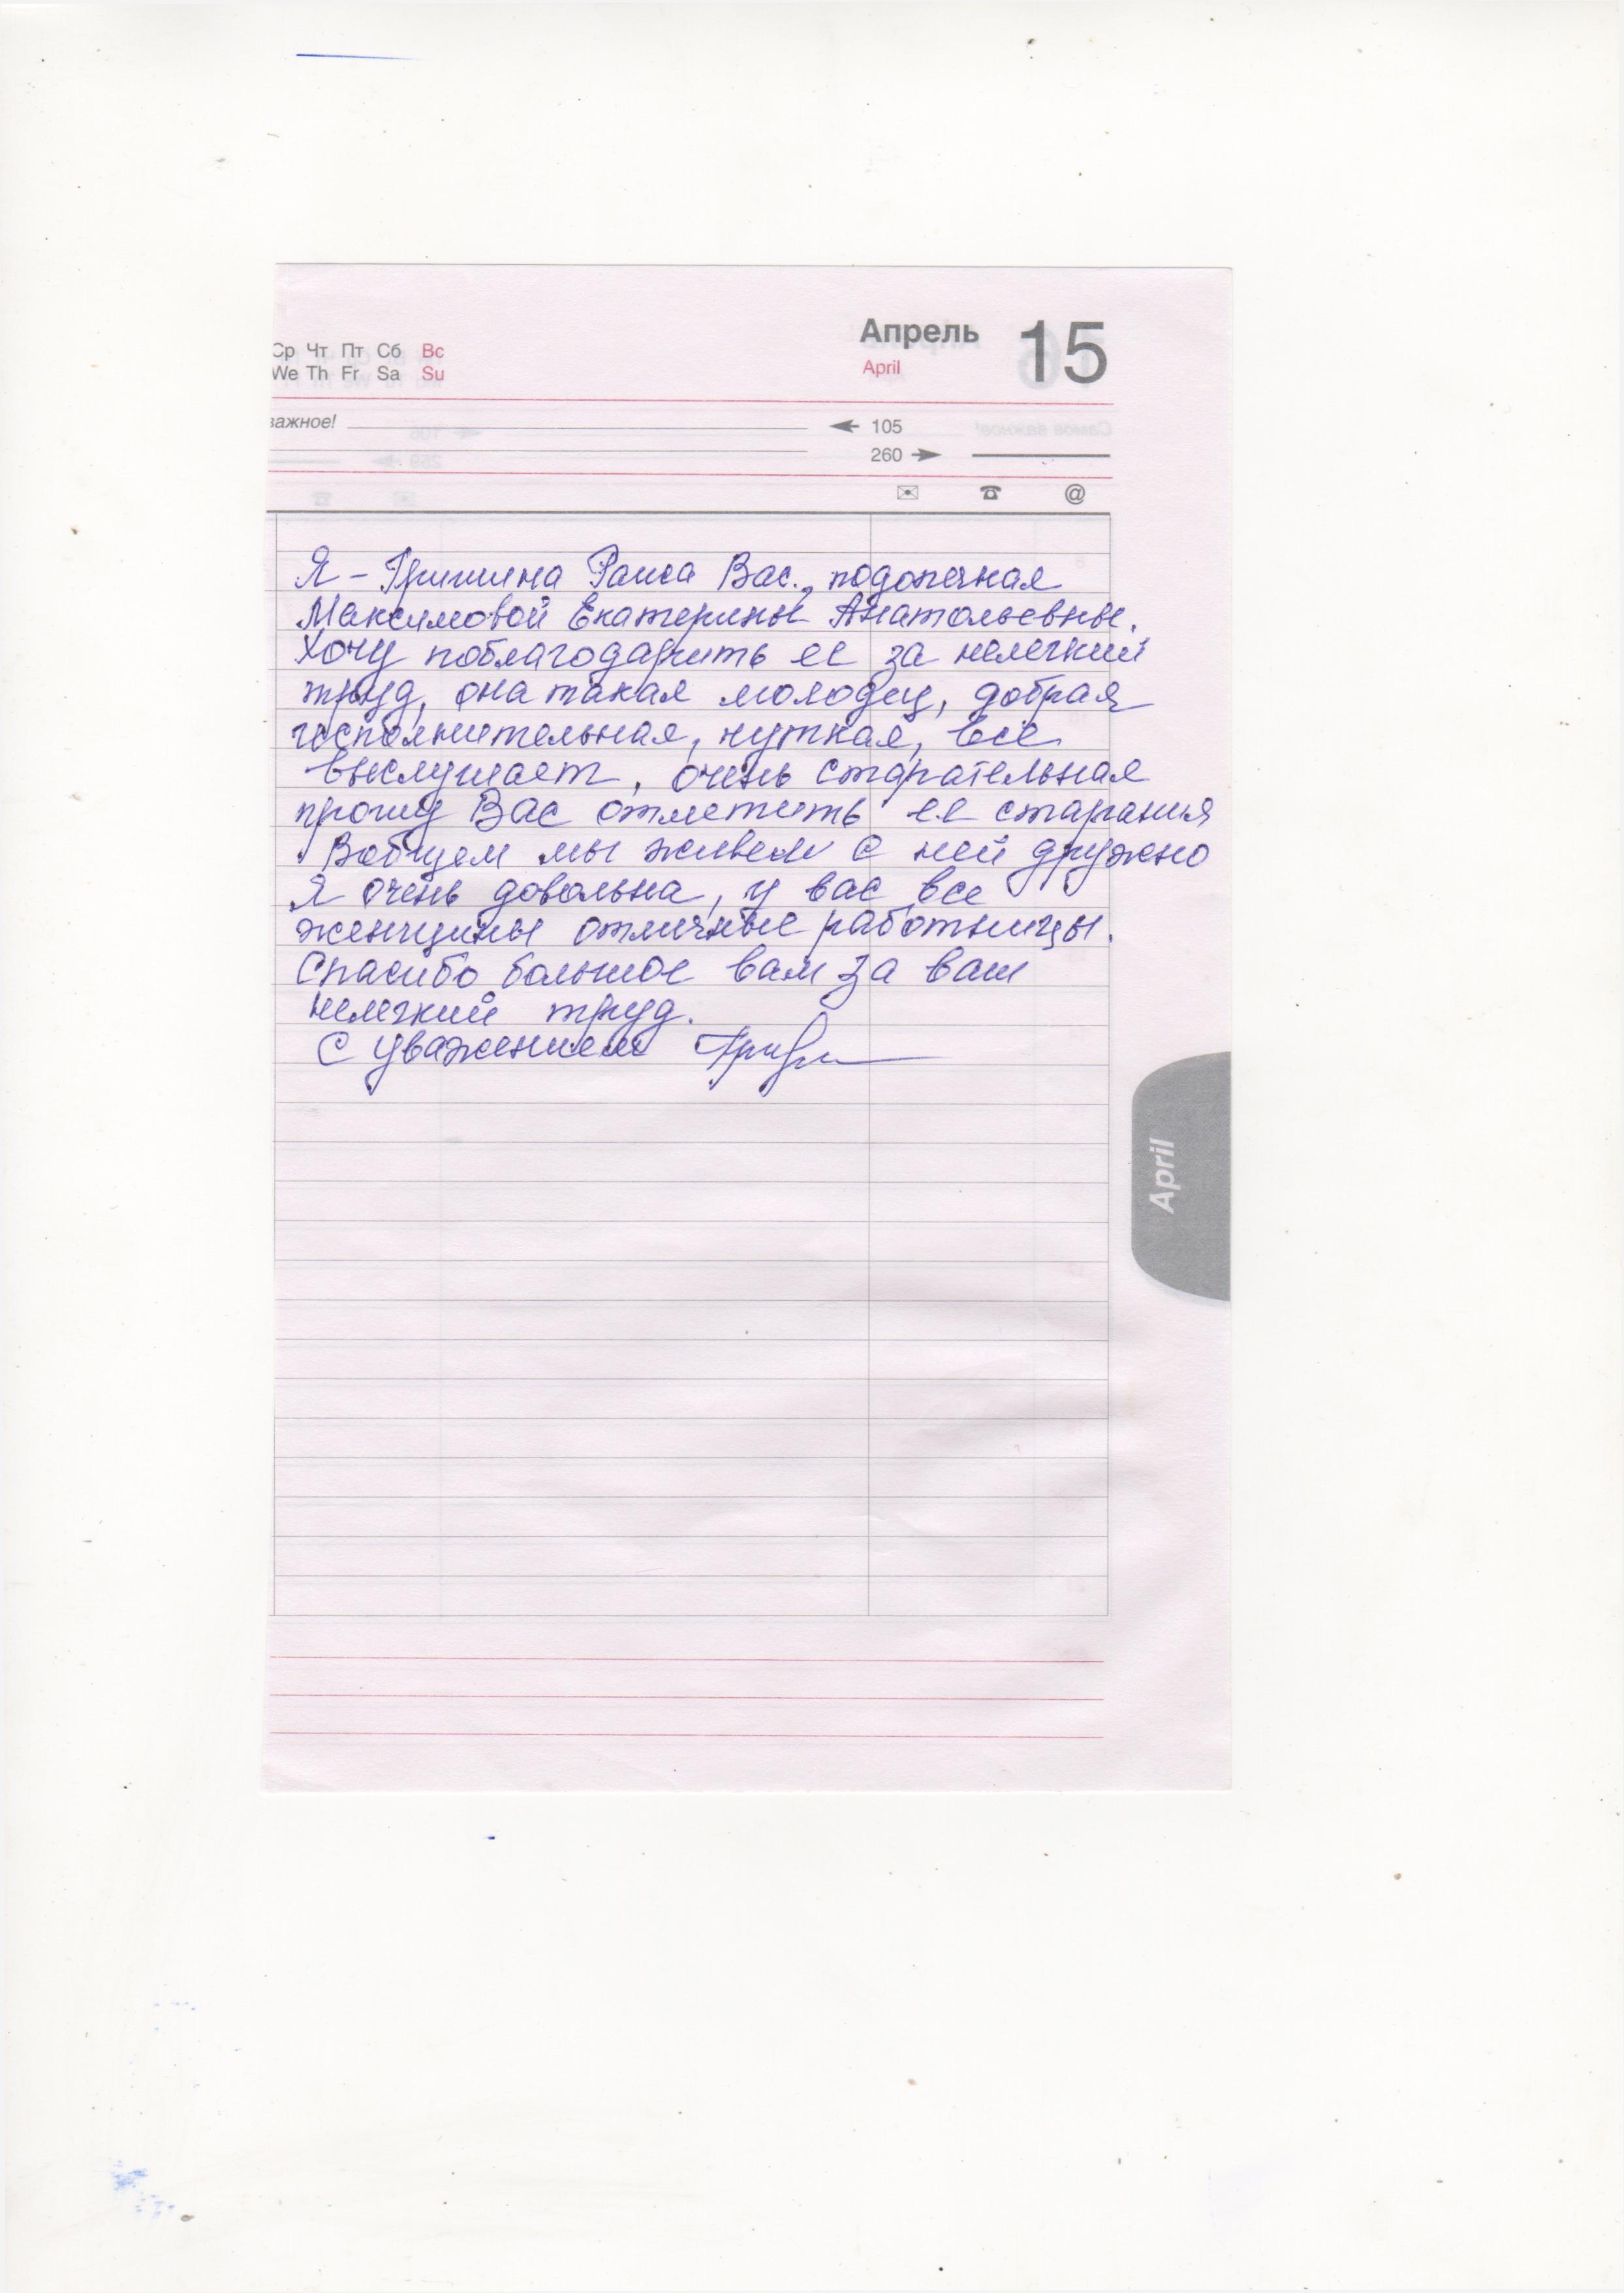 Апрель 15
Ср Чт Пт Сб Вс
April
We Th Fr Sa Su
важное!
105
260
@
Я - Гришина Раиса Вас., подопечная
Максимовой Екатерины Анатольевны.
Хочу поблагодарить ее за нелегкий
труд, она такая молодец, добрая
исполнительная, чуткая, всё
выслушает, очень старательная
прошу Вас отметить ее старания
Вобщем мы живем с ней дружно
Я очень довольна, у вас все
женщины отличные работницы.
Спасибо большое вам за ваш
нелегкий труд.
С уважением
April